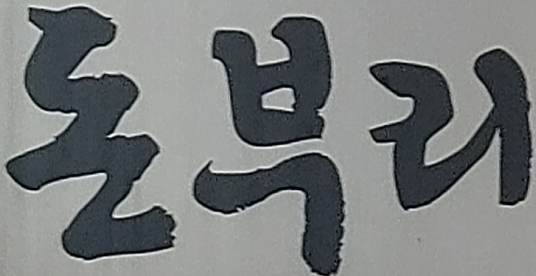 돈부리